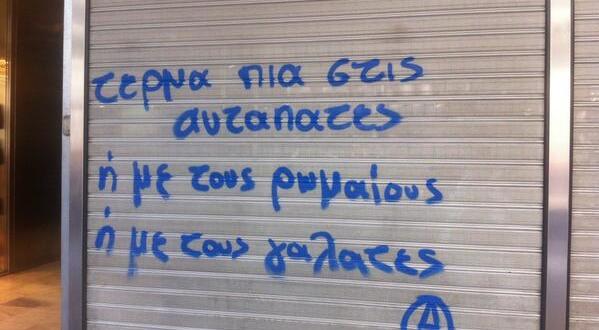 τερμα πια στις
αυταπατες
ή με τους ρωμαίους
ή με τους γαλατες
Ⓐ